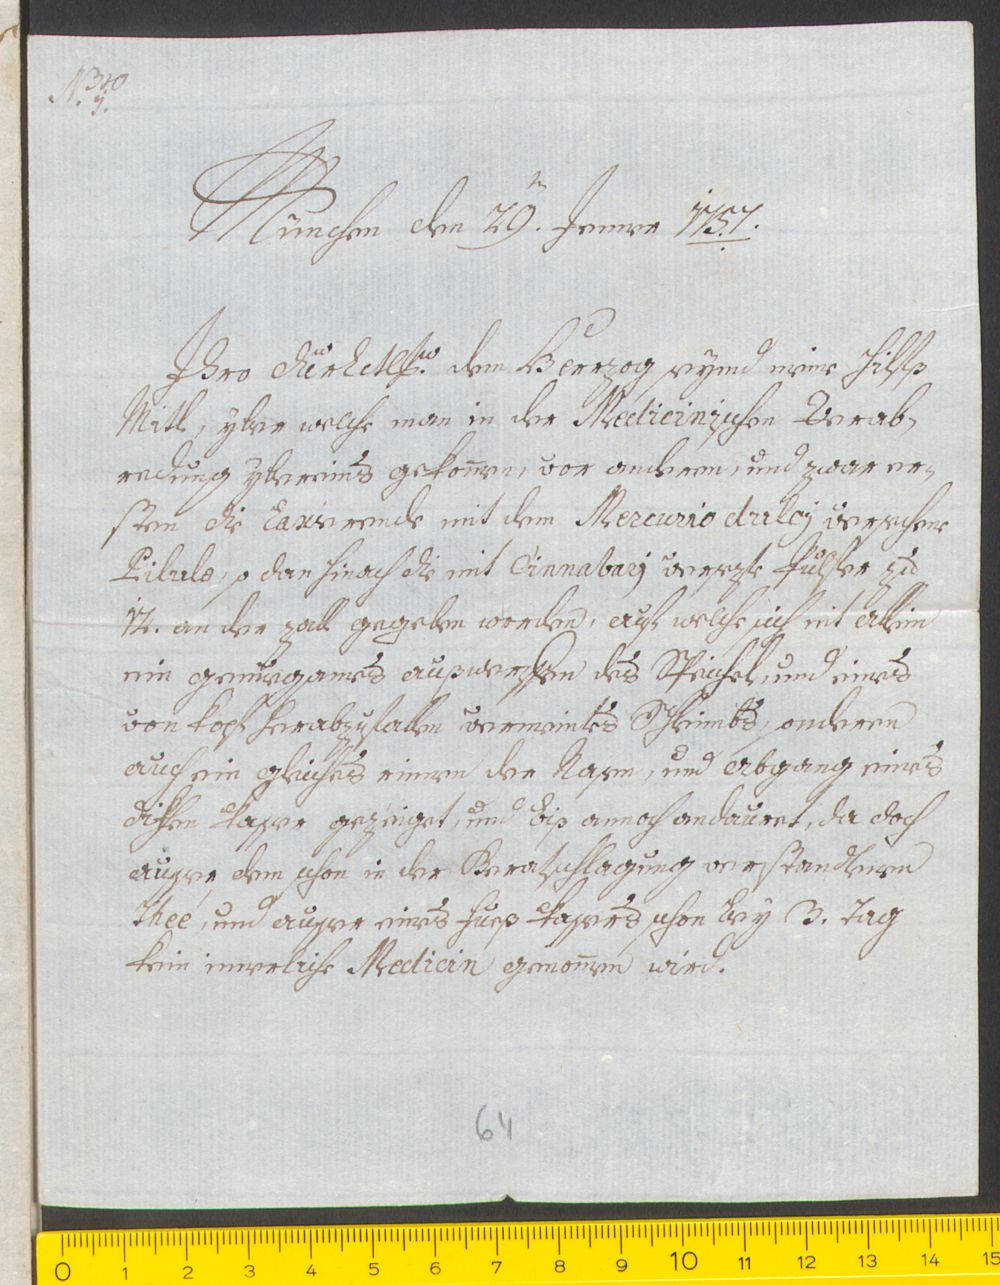 N. 3tio
j.
München den 29.ten Jenner 1757.
Ihro dürchlt dem Herzog seynd eine Hilfs
Mitl, yber welche man in der Medicinischen Verab-
redung yber eins gekom̄en, vor anderen, und zwar er-
sten die Laxierende mit dem Mercurio dulcj versehene
Pilule, so dan hinach die mit Cinnabarj versezte Pulfer zu
12. an der zall gegeben worden, auf welche sich nit allein
ein genuegsames außwerffen des Speichel, und eines
von kopf herabzufallen vermeintes Schleimbs, sonderen
auch ein gleiches rinnen der Nasen, und abgang eines
dikhen wasser gezeiget, und bis annoch andauret, da doch
ausser dem schon in der Berathschlagung verstandtenen
Thee, und ausser eines fues wassers schon bey 3. Tag
kein innerliche Medicin genom̄en wird.
64
0 1 2 3 4 5 6 7 8 9 10 11 12 13 14 15